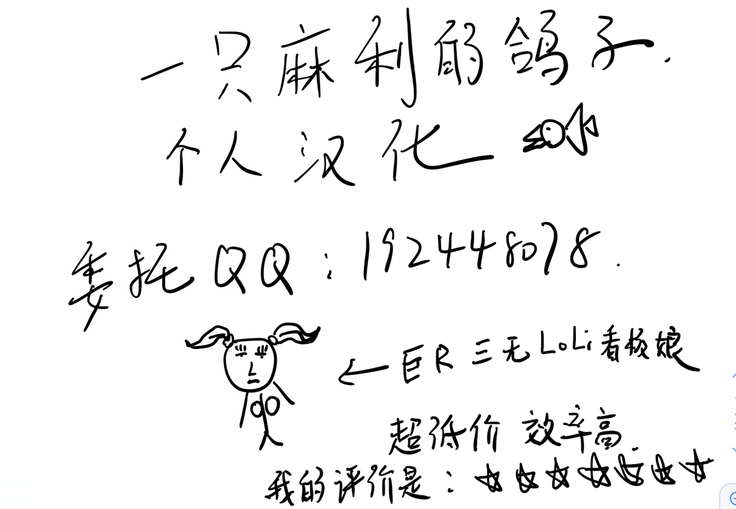 一只麻利的鸽子.
个人汉化
委托QQ:1924448078.
← 巨R 三无LoLi看板娘
超低价 效率高.
我的评价是:☆☆☆☆☆☆☆